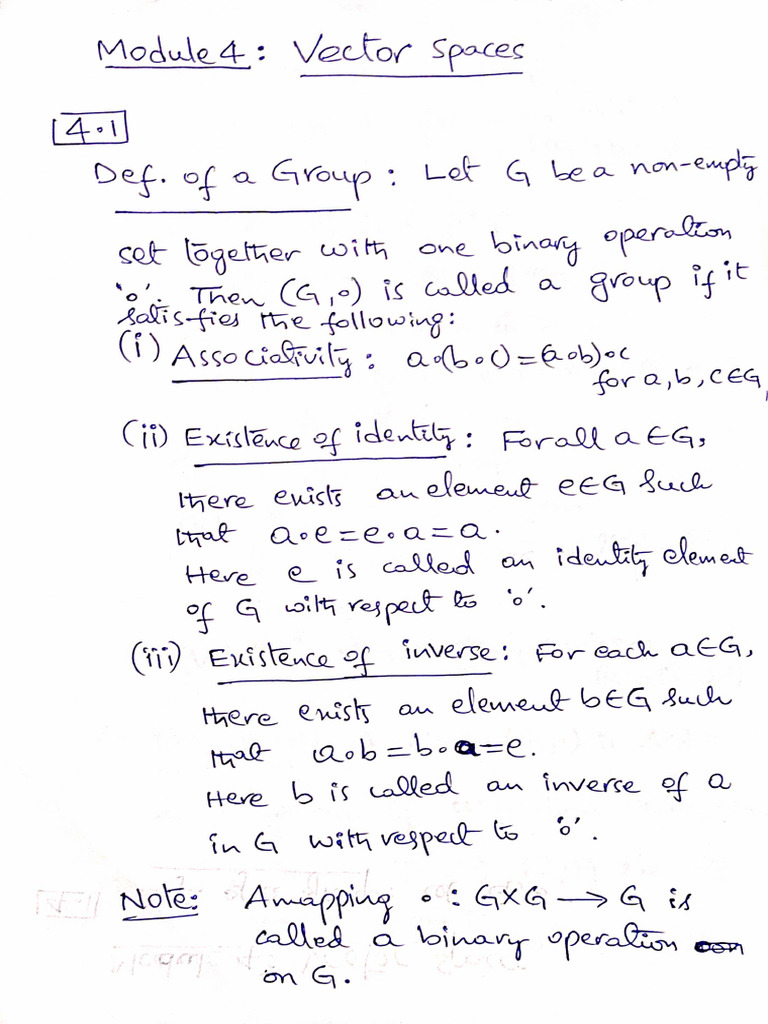 Module 4: Vector spaces
4.1
Def. of a Group: Let G be a non-empty
set together with one binary operation
'o'. Then (G,∘) is called a group if it
satisfies the following:
(i) Associativity: a∘(b∘c)=(a∘b)∘c
for a,b,c∈G,
(ii) Existence of identity: For all a∈G,
there exists an element e∈G such
that a∘e=e∘a=a.
Here e is called an identity element
of G with respect to 'o'.
(iii) Existence of inverse: For each a∈G,
there exists an element b∈G such
that a∘b=b∘a=e.
Here b is called an inverse of a
in G with respect to 'o'.
Note: A mapping ∘: G×G → G is
called a binary operation
on G.